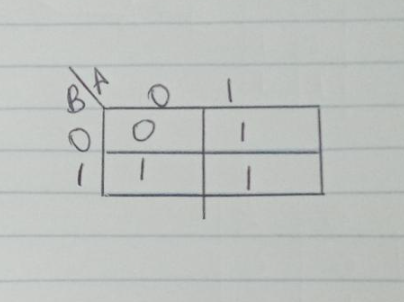 B\A 0 1
0 0 1
1 1 1